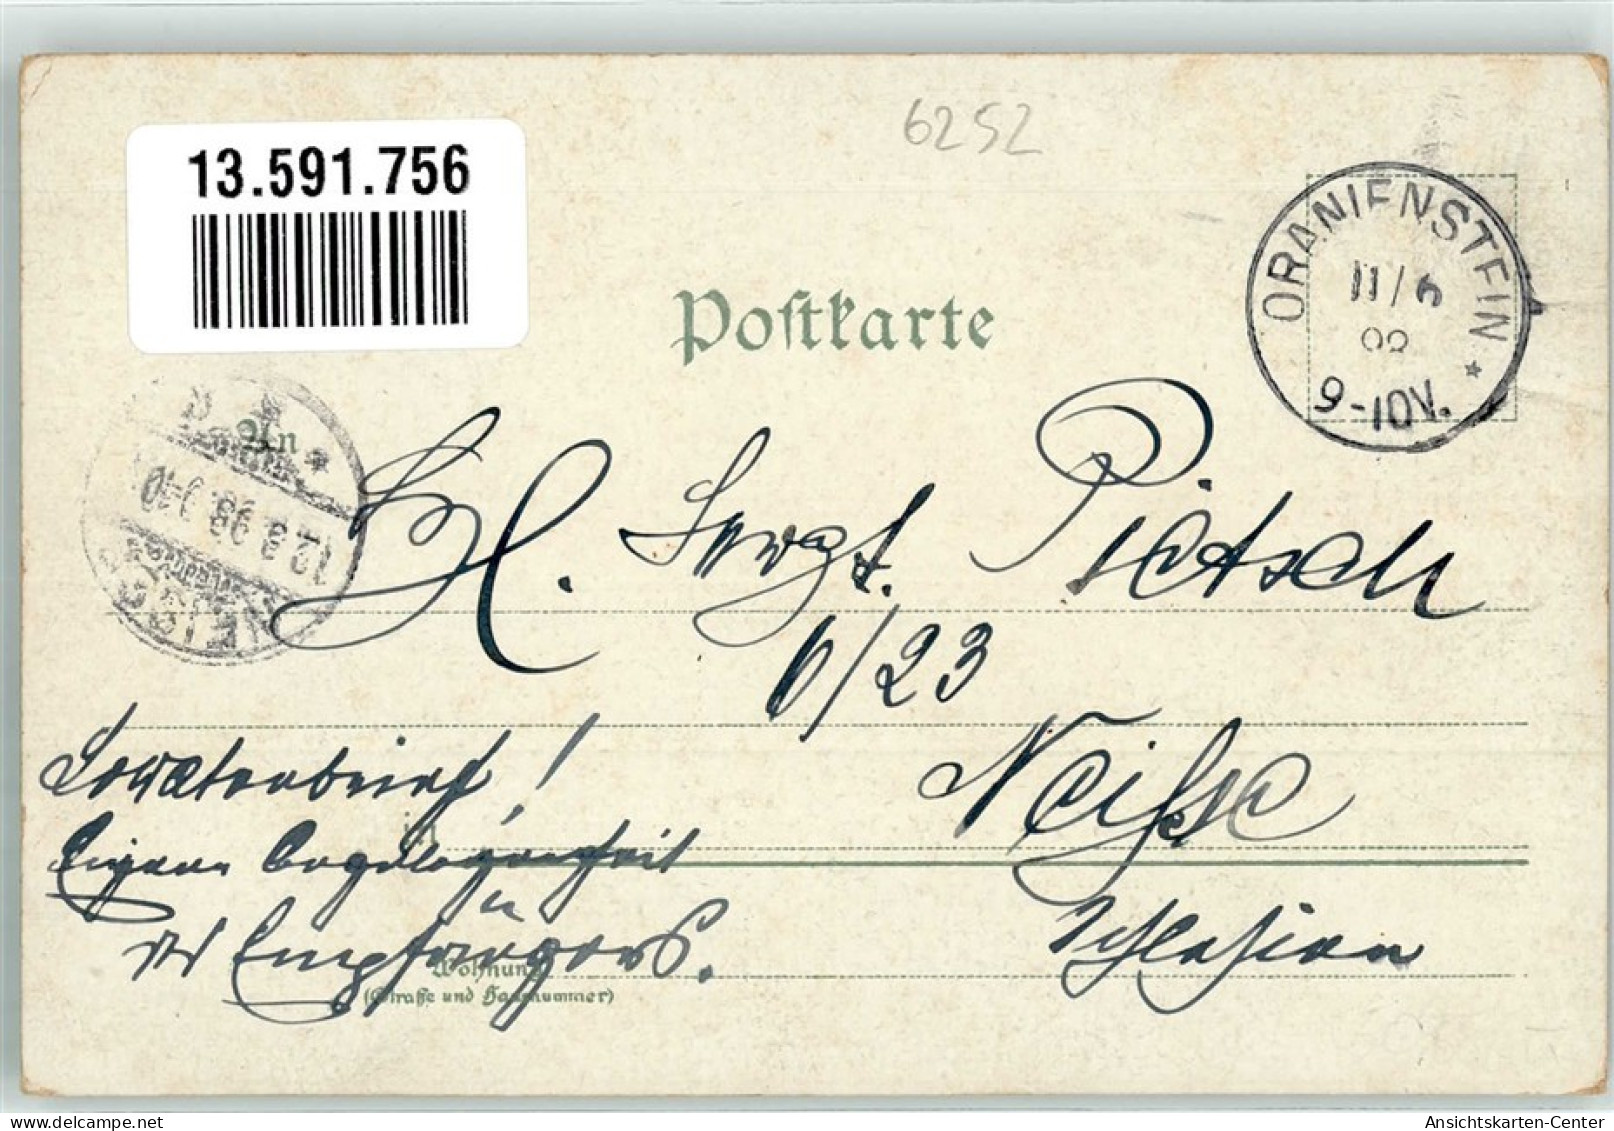 6252
13.591.756
ORANIENSTEIN *
11/6
98
6-10V.
Postkarte
An
12.6.98.
NEISSE
H. Sergt. Pietsch
6/23
Soldatenbrief!
in
Neisse
Eigene Angelegenheit
des Empfängers.
Schlesien
Wohnung
(Straße und Hausnummer)
Ansichtskarten-Center